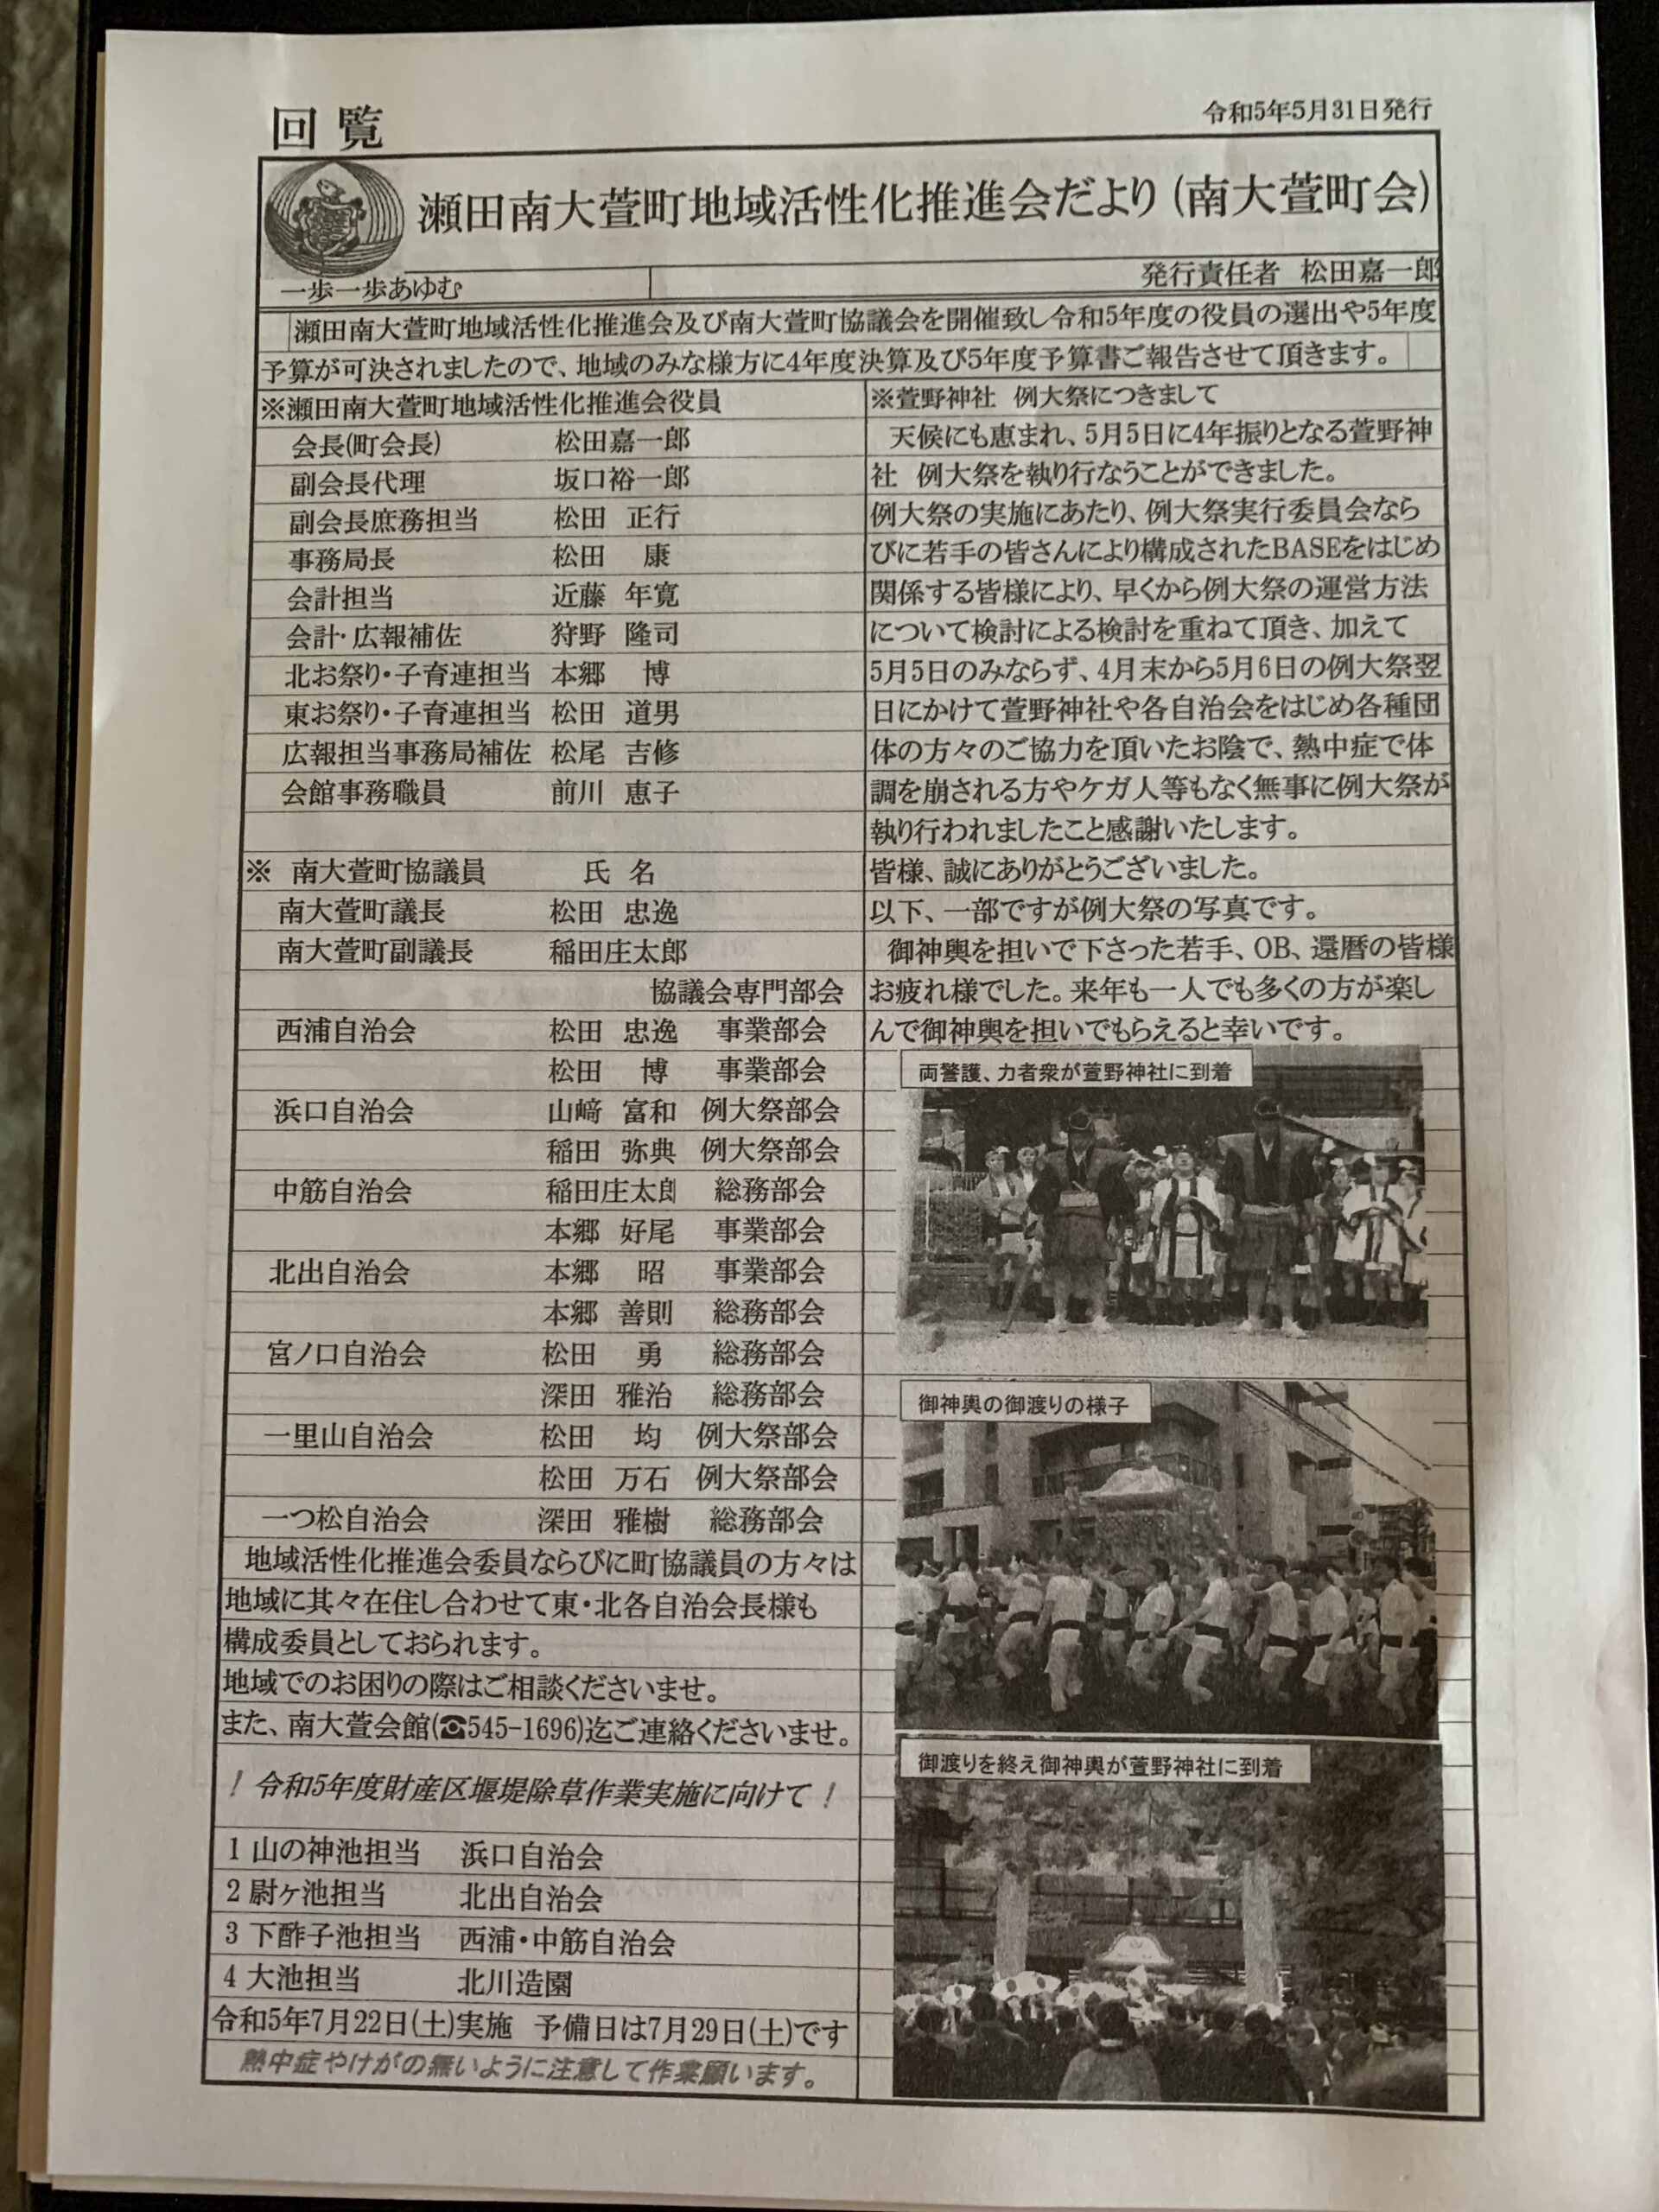 回覧
令和5年5月31日発行
瀬田南大萱町地域活性化推進会だより(南大萱町会)
一歩一歩あゆむ
発行責任者 松田嘉一郎
瀬田南大萱町地域活性化推進会及び南大萱町協議会を開催致し令和5年度の役員の選出や5年度
予算が可決されましたので、地域のみな様方に4年度決算及び5年度予算書ご報告させて頂きます。
※瀬田南大萱町地域活性化推進会役員
会長(町会長) 松田嘉一郎
副会長代理 坂口裕一郎
副会長庶務担当 松田 正行
事務局長 松田 康
会計担当 近藤 年寛
会計・広報補佐 狩野 隆司
北お祭り・子育連担当 本郷 博
東お祭り・子育連担当 松田 道男
広報担当事務局補佐 松尾 吉修
会館事務職員 前川 恵子
※ 南大萱町協議員 氏 名
南大萱町議長 松田 忠逸
南大萱町副議長 稲田庄太郎
協議会専門部会
西浦自治会 松田 忠逸 事業部会
松田 博 事業部会
浜口自治会 山﨑 富和 例大祭部会
稲田 弥典 例大祭部会
中筋自治会 稲田庄太郎 総務部会
本郷 好尾 事業部会
北出自治会 本郷 昭 事業部会
本郷 善則 総務部会
宮ノ口自治会 松田 勇 総務部会
深田 雅治 総務部会
一里山自治会 松田 均 例大祭部会
松田 万石 例大祭部会
一つ松自治会 深田 雅樹 総務部会
地域活性化推進会委員ならびに町協議員の方々は
地域に其々在住し合わせて東・北各自治会長様も
構成委員としておられます。
地域でのお困りの際はご相談くださいませ。
また、南大萱会館(☎545-1696)迄ご連絡くださいませ。
！令和5年度財産区堰堤除草作業実施に向けて！
1 山の神池担当 浜口自治会
2 尉ヶ池担当 北出自治会
3 下酢子池担当 西浦・中筋自治会
4 大池担当 北川造園
令和5年7月22日(土)実施 予備日は7月29日(土)です
熱中症やけがの無いように注意して作業願います。
※萱野神社 例大祭につきまして
天候にも恵まれ、5月5日に4年振りとなる萱野神
社 例大祭を執り行なうことができました。
例大祭の実施にあたり、例大祭実行委員会なら
びに若手の皆さんにより構成されたBASEをはじめ
関係する皆様により、早くから例大祭の運営方法
について検討による検討を重ねて頂き、加えて
5月5日のみならず、4月末から5月6日の例大祭翌
日にかけて萱野神社や各自治会をはじめ各種団
体の方々のご協力を頂いたお陰で、熱中症で体
調を崩される方やケガ人等もなく無事に例大祭が
執り行われましたこと感謝いたします。
皆様、誠にありがとうございました。
以下、一部ですが例大祭の写真です。
御神輿を担いで下さった若手、OB、還暦の皆様
お疲れ様でした。来年も一人でも多くの方が楽し
んで御神輿を担いでもらえると幸いです。
両警護、力者衆が萱野神社に到着
御神輿の御渡りの様子
御渡りを終え御神輿が萱野神社に到着